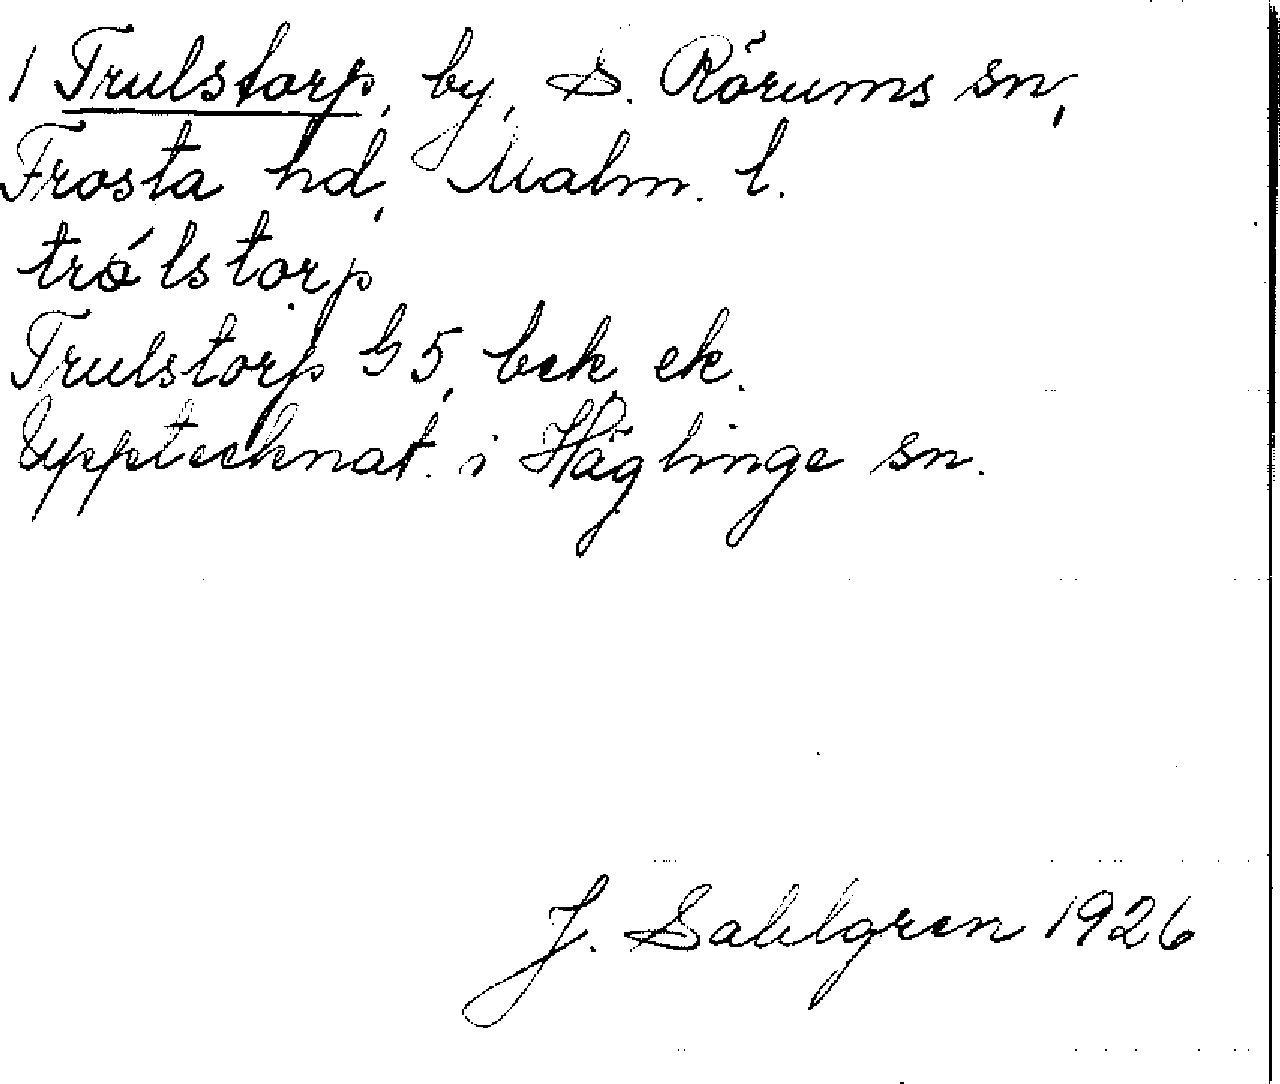 1 Trulstorp, by, S. Rörums sn,
Frosta hd, Malm. l.
trólstorp
Trulstorp G5, bek. ek.
Upptecknat i Häglinge sn.
J. Sahlgren 1926